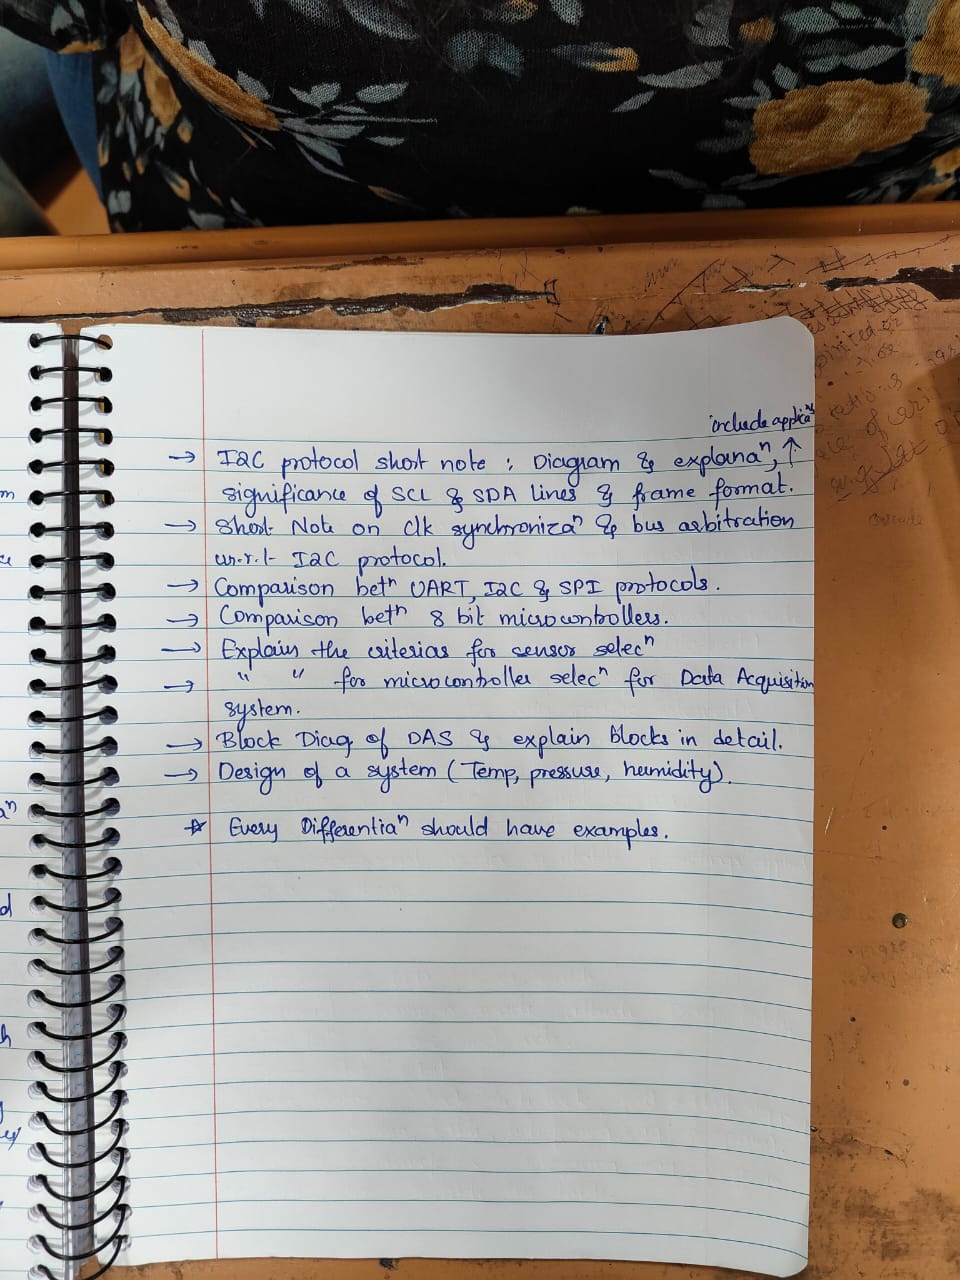 include applicaⁿ
→ I2C protocol short note : Diagram & explanaⁿ, ↑
significance of SCL & SDA lines & frame format.
→ Short Note on clk synchronizaⁿ & bus arbitration
w.r.t I2C protocol.
→ Comparison betⁿ UART, I2C & SPI protocols.
→ Comparison betⁿ 8 bit microcontrollers.
→ Explain the criterias for sensor selecⁿ
→ " " for microcontroller selecⁿ for Data Acquisition
system.
→ Block Diag of DAS & explain blocks in detail.
→ Design of a system (Temp, pressure, humidity).
* Every Differentiaⁿ should have examples.